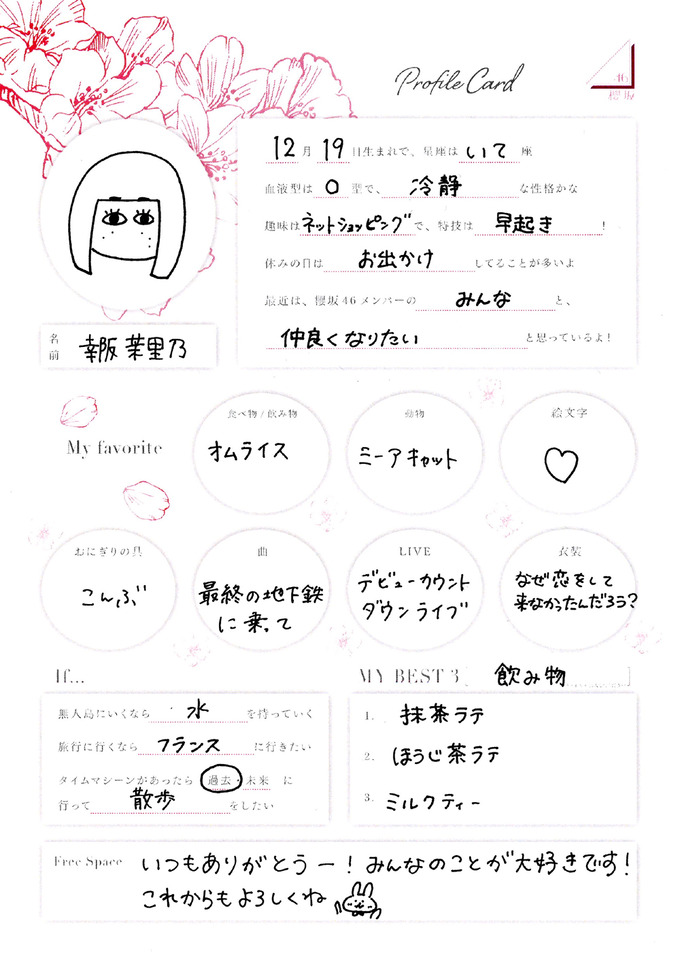 Profile Card
46
櫻坂
12月19日生まれで、星座はいて座
血液型はO型で、冷静な性格かな
趣味はネットショッピングで、特技は早起き!
休みの日はお出かけしてることが多いよ
最近は、櫻坂46メンバーのみんなと、
仲良くなりたいと思っているよ!
名前 幸阪茉里乃
My favorite
食べ物/飲み物
オムライス
動物
ミーアキャット
絵文字
♡
おにぎりの具
こんぶ
曲
最終の地下鉄
に乗って
LIVE
デビューカウント
ダウンライブ
衣装
なぜ恋をして
来なかったんだろう?
If...
無人島にいくなら水を持っていく
旅行に行くならフランスに行きたい
タイムマシーンがあったら過去・未来に
行って散歩をしたい
MY BEST 3 [飲み物]
1. 抹茶ラテ
2. ほうじ茶ラテ
3. ミルクティー
Free Space
いつもありがとうー!みんなのことが大好きです!
これからもよろしくね